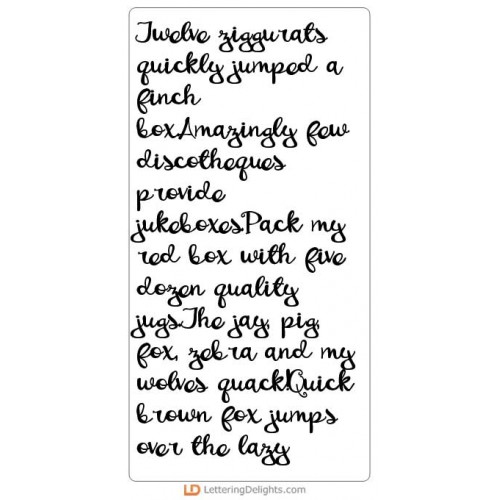 Twelve ziggurats
quickly jumped a
finch
box.Amazingly few
discotheques
provide
jukeboxes.Pack my
red box with five
dozen quality
jugs.The jay, pig,
fox, zebra and my
wolves quack!Quick
brown fox jumps
over the lazy
LD LetteringDelights.com